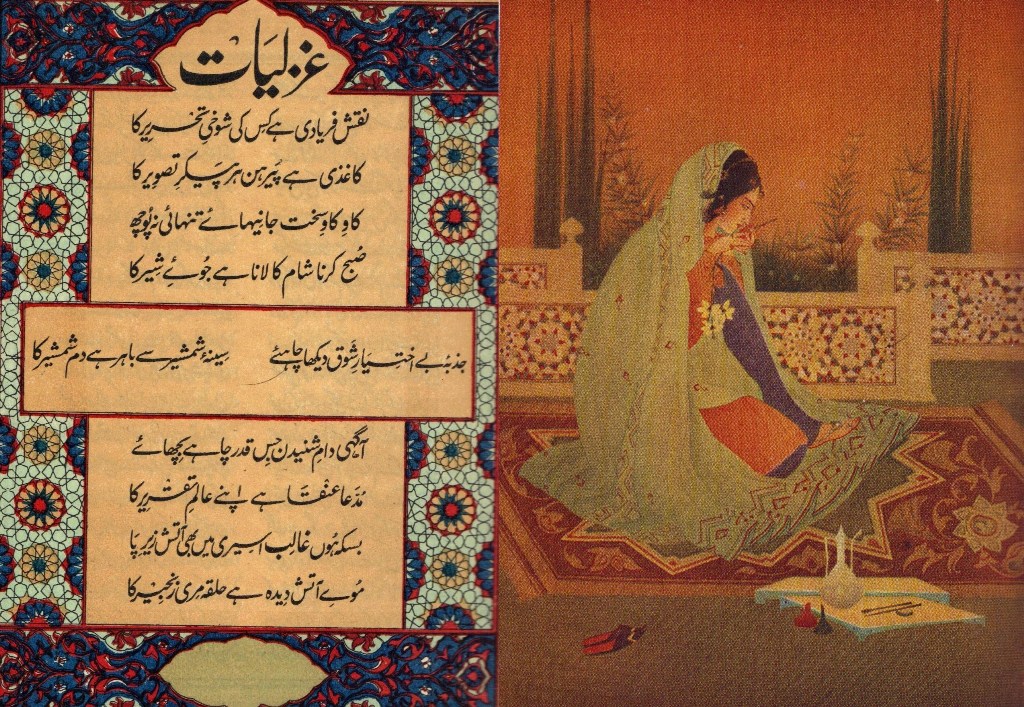 غزلیات
نقش فریادی ہے کس کی شوخیِ تحریر کا
کاغذی ہے پیرہن ہر پیکرِ تصویر کا
کاوِ کاوِ سخت جانیہائے تنہائی نہ پُوچھ
صُبح کرنا شام کا لانا ہے جُوئے شِیر کا
جذبۂ بے اختیارِ شوق دیکھا چاہئے سینۂ شمشیر سے باہر ہے دم شمشیر کا
آگہی دامِ شنیدن جس قدر چاہے بچھائے
مُدّعا عنقا ہے اپنے عالمِ تقریر کا
بسکہ ہُوں غالب اسیری میں بھی آتش زیرِ پا
مُوے آتش دِیدہ ہے حلقہ مِری زنجیر کا